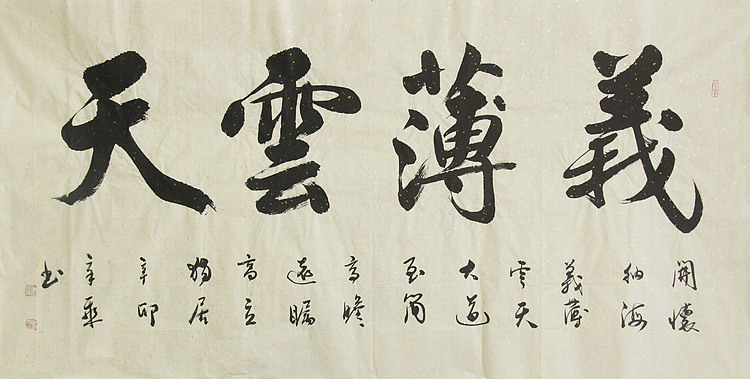 義薄雲天
開懷
納海
義薄
雲天
大道
至簡
高瞻
遠矚
高立
獨居
辛卯
書